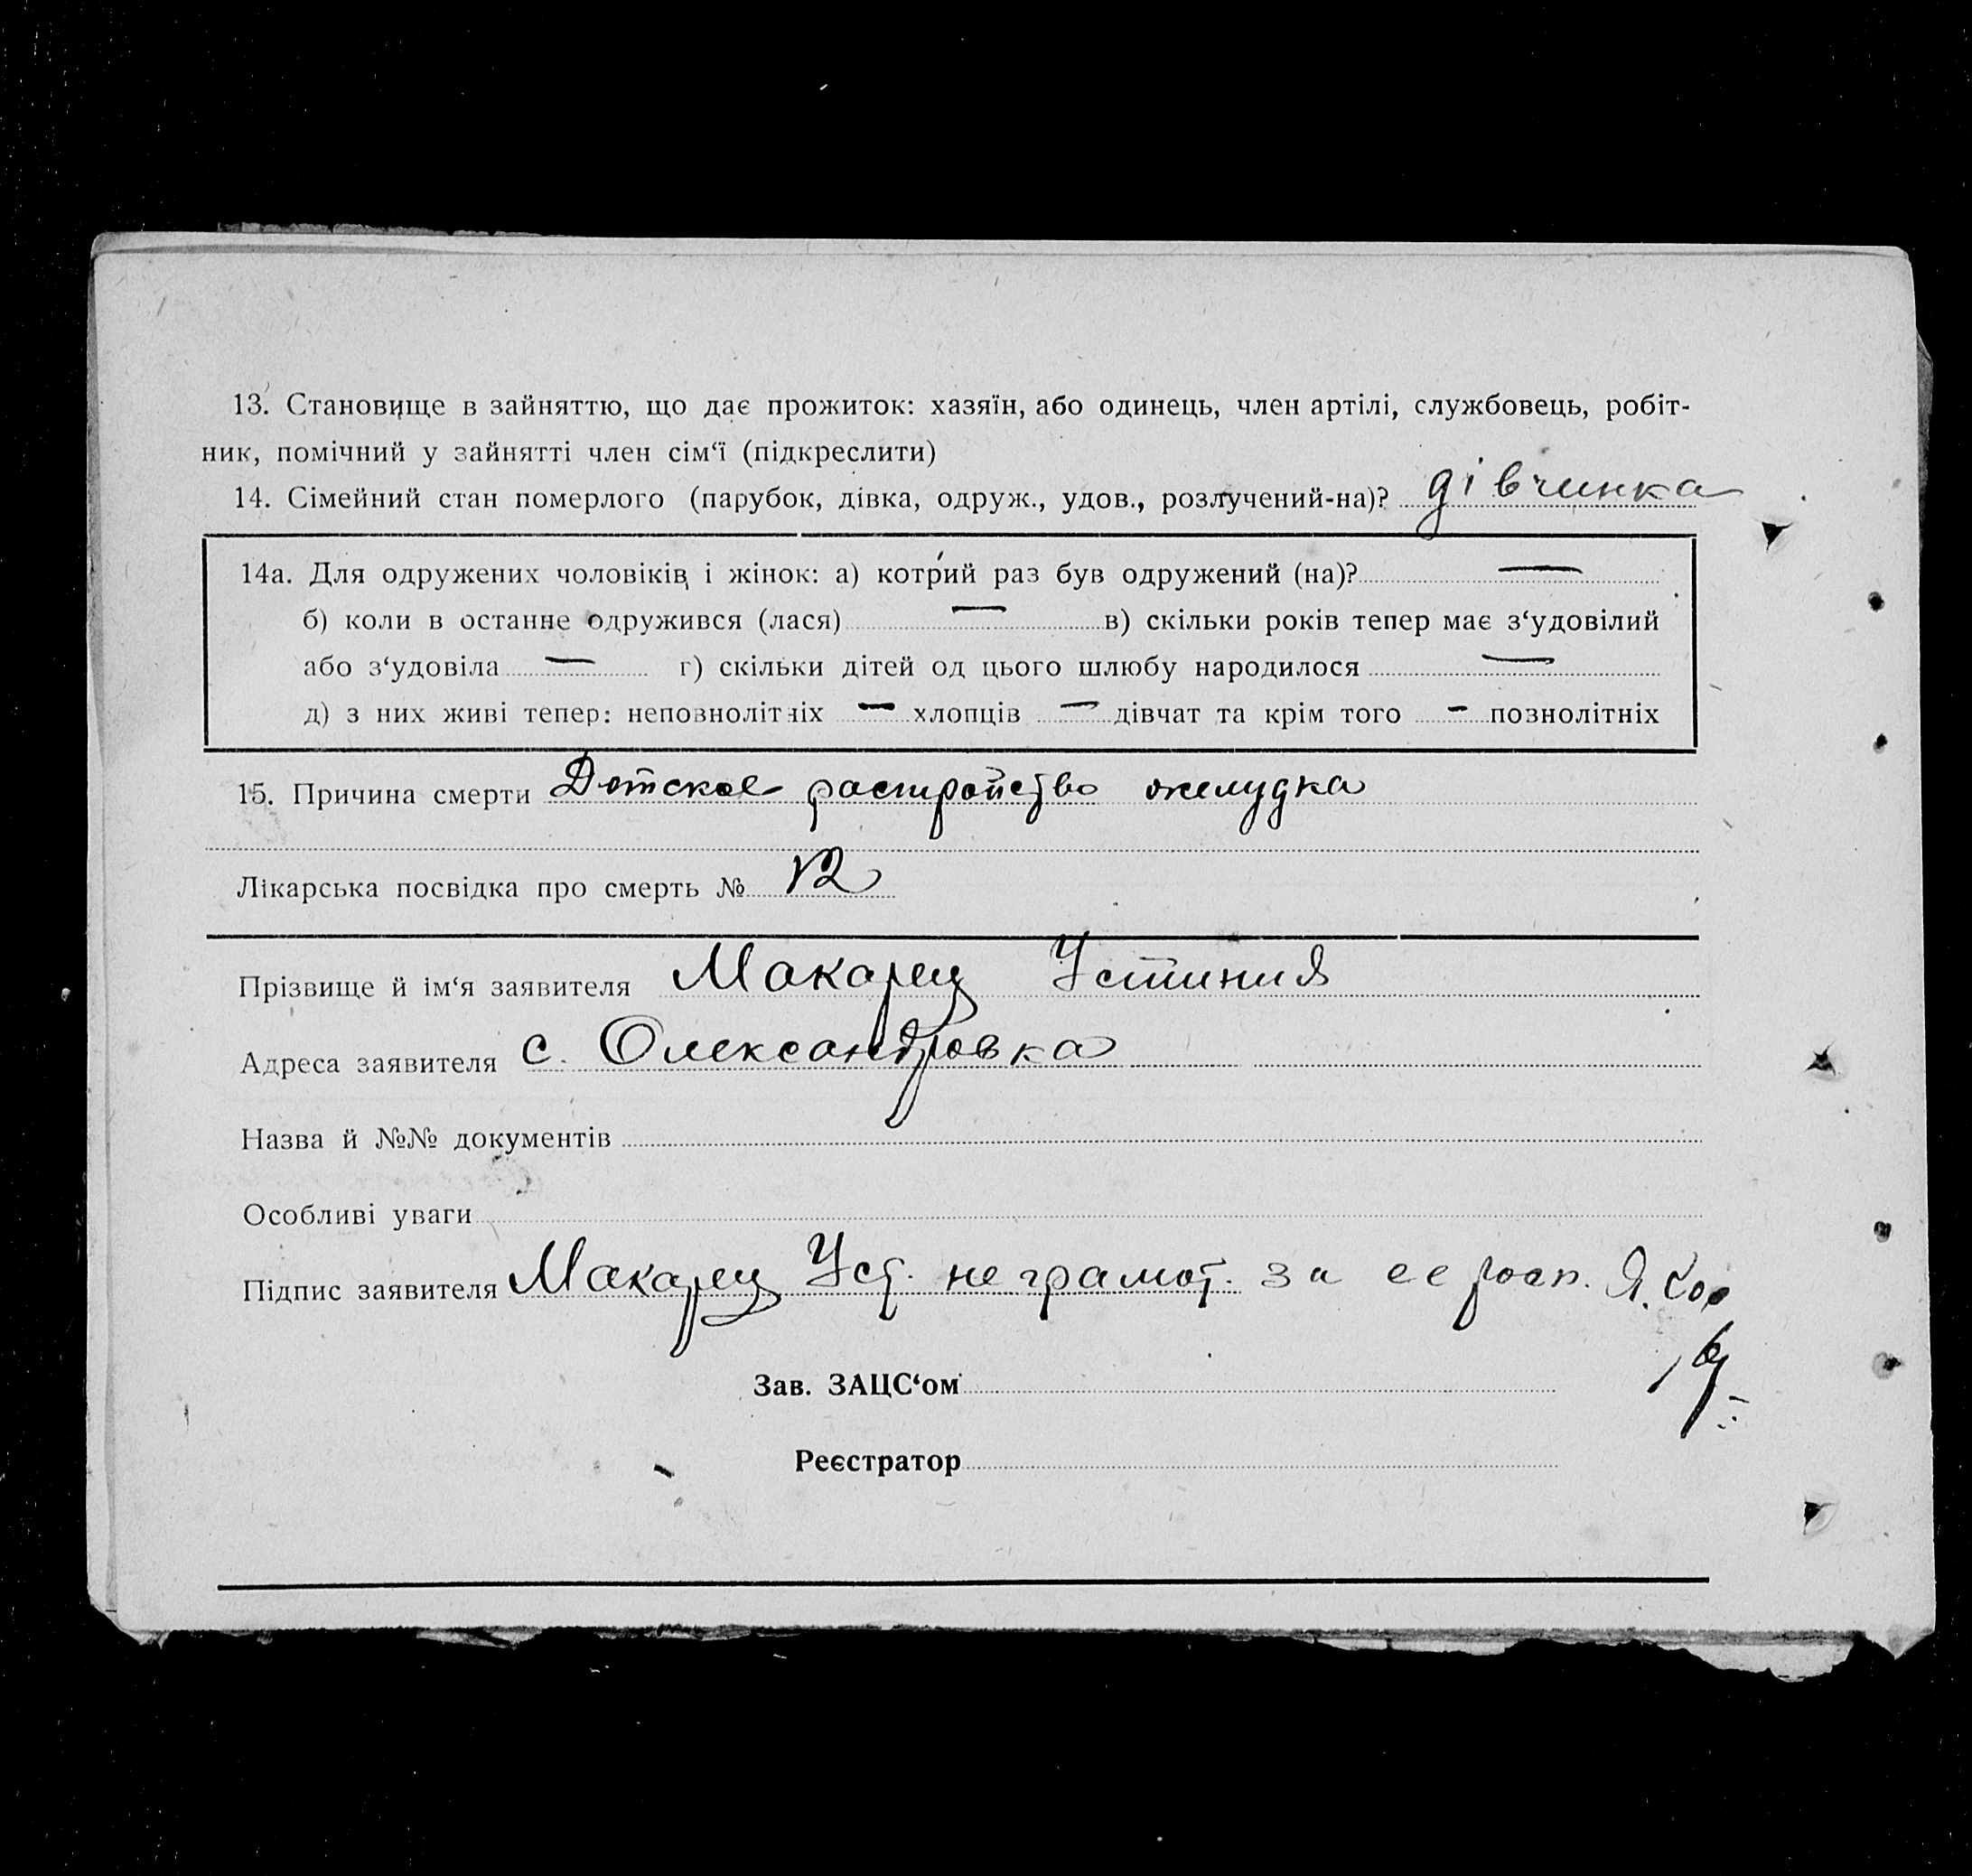 13. Становище в зайняттю, що дає прожиток: хазяїн, або одинець, член артілі, службовець, робіт-
ник, помічний у зайнятті член сім‘ї (підкреслити)
14. Сімейний стан померлого (парубок, дівка, одруж., удов., розлучений-на)? дівчинка
14а. Для одружених чоловіків і жінок: а) котрий раз був одружений (на)? —
б) коли в останнє одружився (лася) — в) скільки років тепер має з‘удовілий
або з‘удовіла — г) скільки дітей од цього шлюбу народилося —
д) з них живі тепер: неповнолітніх — хлопців — дівчат та крім того — познолітніх
15. Причина смерти Детское растройство желудка
Лікарська посвідка про смерть № 12
Прізвище й ім‘я заявителя Макарец Устиния
Адреса заявителя с. Олександровка
Назва й №№ документів
Особливі уваги
Підпис заявителя Макарец Уст. не грамот. за ее росп. Я.
Зав. ЗАЦС‘ом
Реєстратор